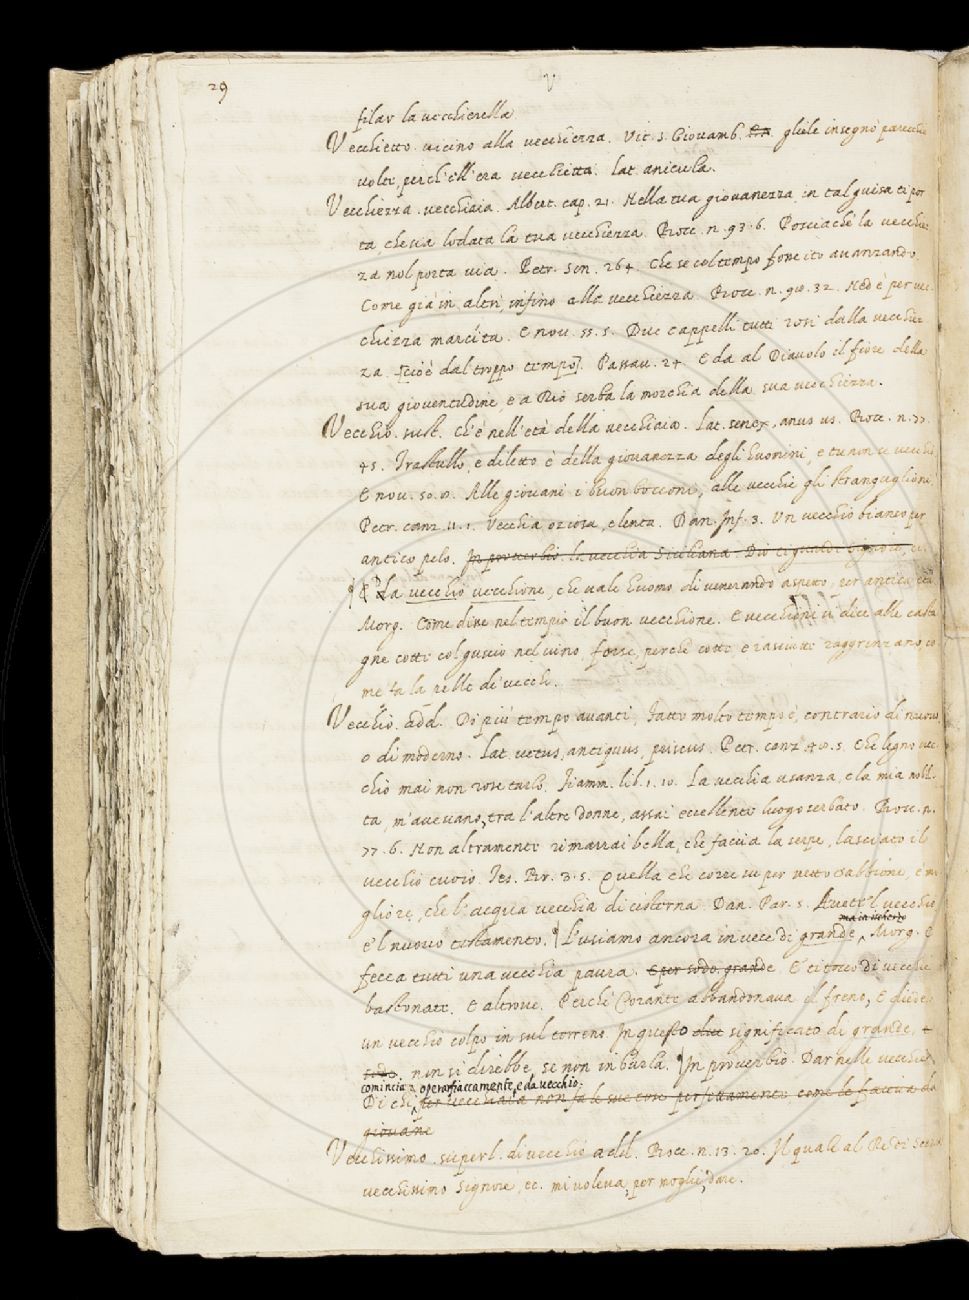 29 V
filar la vecchierella
Vecchietto. vicino alla vecchiezza. Vit. S. Giovamb. gliele insegnò parecchie
volte, perch'ell'era vecchietta. lat. anicula.
Vecchiezza. vecchiaia. Albert. cap. 21. Nella tua giovanezza, in tal guisa ti por
ta, che sia lodata la tua vecchiezza. Bocc. n. 93. 6. Posciachè la vecchiez
za nol porta via. Petr. Son. 264. Che se col tempo fossi ito avanzando,
Come già in altri, infino alla vecchiezza. Bocc. n. 98. 32. Nèd è per vec
chiezza marcita. E nov. 55. 5. Due cappelli tutti rosi dalla vecchiez
za. [cioè dal troppo tempo]. Passav. 24. E da al Diavolo il fiore della
sua gioventudine, e a Dio serba la morchia della sua vecchiezza.
Vecchio. sust. Ch'è nell'età della vecchiaia. Lat. senex, anus us. Bocc. n. 77.
45. Trastullo, e diletto è della giovanezza degli huomini, e tu non se vecchio
E nov. 50. 8. Alle giovani i buon bocconi, alle vecchie gli stranguglioni
Petr. canz. 11. 1. Vecchia oziosa, e lenta. Dan. Inf. 3. Un vecchio bianco per
antico pelo. In proverbio. la vecchia Siciliana. Dio ci guardi
¶ Da vecchio vecchione, che vale huomo di venerando aspetto, per antica età
Morg. Come dire nel tempio il buon vecchione. E vecchioni si dice alle casta
gne cotte col guscio nel vino forse, perchè cotte, e rasciutte raggrinzano, co
me fa la pelle de' vecchi.
Vecchio. add. Di più tempo avanti, Fatto molto tempo è, contrario di nuovo,
o di moderno. Lat. vetus, antiquus, priscus. Petr. canz. 48. 5. Che legno vec
chio mai non rose tarlo. Fiamm. lib. 1. 10. La vecchia usanza, e la mia nobil
tà, m'avevano, tra l'altre donne, assai eccellente luogo serbato. Bocc. n.
77. 6. Non altramente rimarrai bella, che faccia la serpe, lasciato il
vecchio cuoio. Tes. Br. 3. 5. Quella che corre su per netto sabbione, è mi
gliore, che l'acqua vecchia di cisterna. Dan. Par. 5. Avete'l vecchio
ma in ischerzo
e'l nuovo testamento. ¶ L'usiamo ancora in vece di grande, Morg. E
fecca tutti una vecchia paura. E per sodo, grande. E ti tocco di vecchie
bastonate. E altrove. Perchè Morante abbandonava il freno, E diede
un vecchio colpo in sul terreno. In questo significato di grande, e
sodo, non si direbbe, se non in burla. ¶ In proverbio. Dar nelle vecchie
comincia a operar fiaccamente, e da vecchio.
Di chi per vecchiaia non fa le sue cose perfettamente come le faceva da
giovane
Vecchissimo. superl. di vecchio add. Bocc. n. 13. 20. Il quale al Re di Scozia
vecchissimo Signore, ec. mi voleva, per moglie, dare.